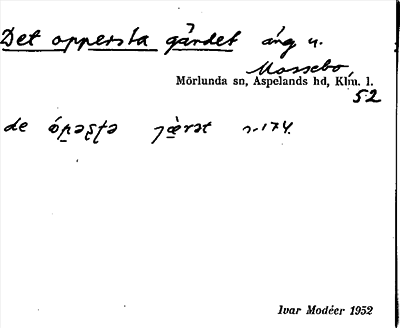 Det oppersta gärdet äng u.
Mossebo,
Mörlunda sn, Aspelands hd, Klm. l.
52
de ópəʂʈə jæ̀rət s. 174.
Ivar Modéer 1952